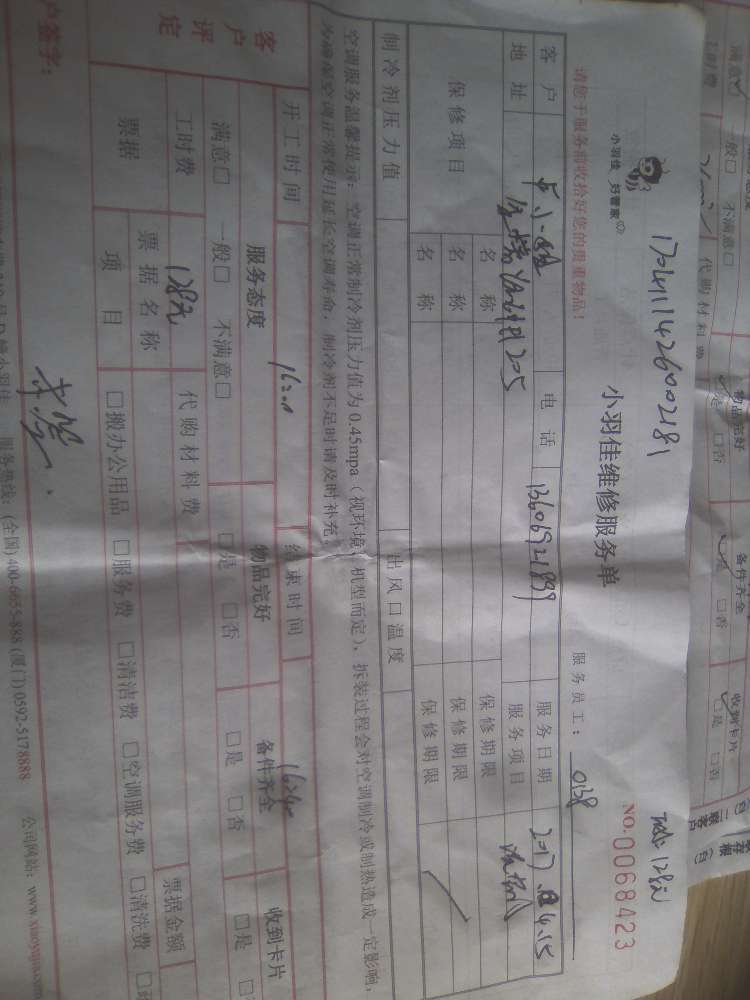 1704111426002181
128元
小羽佳 好管家
小羽佳维修服务单
NO.0068423
请您于服务前收拾好您的贵重物品！
服务员工： 0138
客户
电话 13606921899
服务日期 2017.4.15
地址
服务项目
保修项目 名称 保修期限
名称 保修期限
名称 保修期限
制冷剂压力值 出风口温度
空调服务温馨提示：空调正常制冷剂压力值为0.45mpa（视环境、机型而定），拆装过程会对空调制冷或制热造成一定影响，
为确保空调正常使用延长空调寿命，制冷剂不足时请及时补充。
开工时间 16:00 结束时间 16:20
客户评定 服务态度 物品完好 备件齐全 收到卡片
满意□ 一般□ 不满意□ □是 □否 □是 □否 □是
工时费 128元 代购材料费
票据 票据名称 票据金额
项目 □搬办公用品 □服务费 □清洁费 □空调服务费 □清洗费
户签字：
服务热线：(全国)400-6655-888 (厦门)0592-5178888 公司网站：www.xiaoyujia.com
满意 一般□ 不满意□
工时费 代购材料费
物品完好 备件齐全 收到卡片
是 □否 是 □否 是 □否